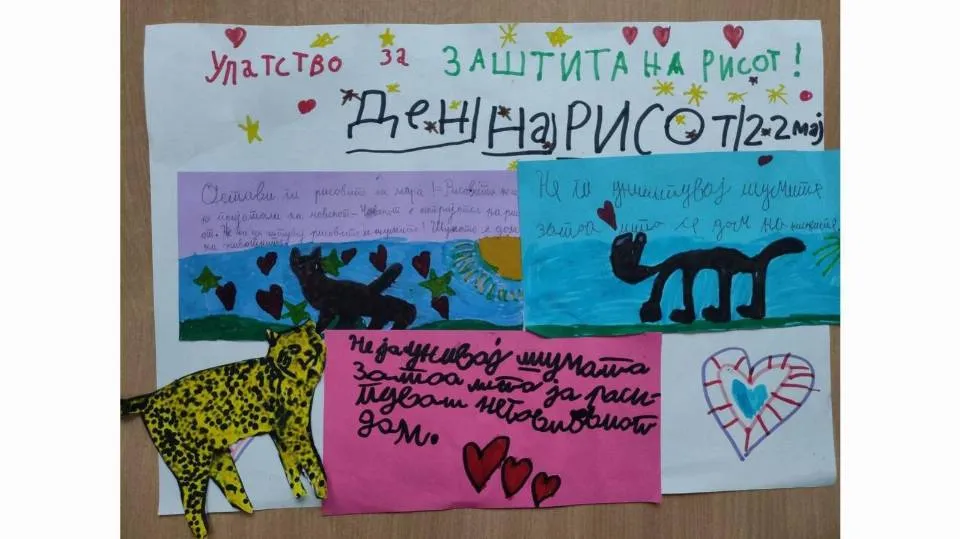 Упатство за ЗАШТИТА НА РИСОТ!
Ден на РИСОТ 22 мај
Остави ги рисовите на мира! Рисовите
пријатели на човекот - Човекот е непријател на рис
от. рисовите и шумите! Шумата е дом
на животните.
Не ги уништувај шумите
затоа што се дом на
Не ја шумата
затоа што ја раси-
пуваш неговиот
дом.